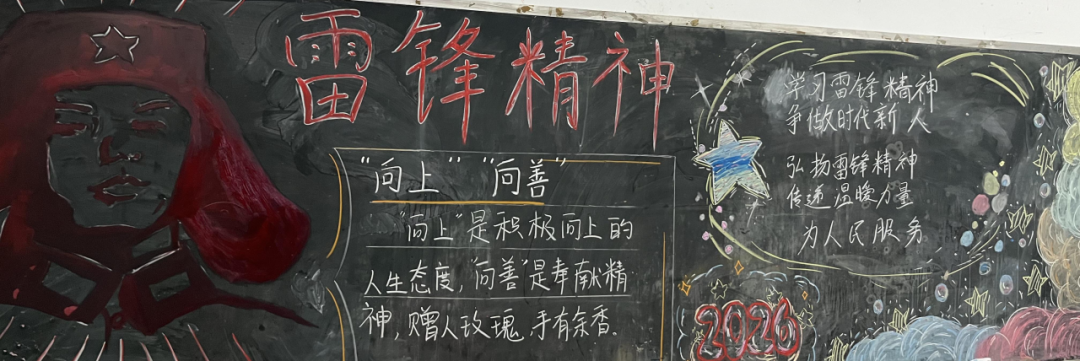 雷锋精神
"向上" "向善"
"向上"是积极向上的
人生态度,"向善"是奉献精
神,赠人玫瑰,手有余香.
学习雷锋精神
争做时代新人
弘扬雷锋精神
传递温暖力量
为人民服务
2026